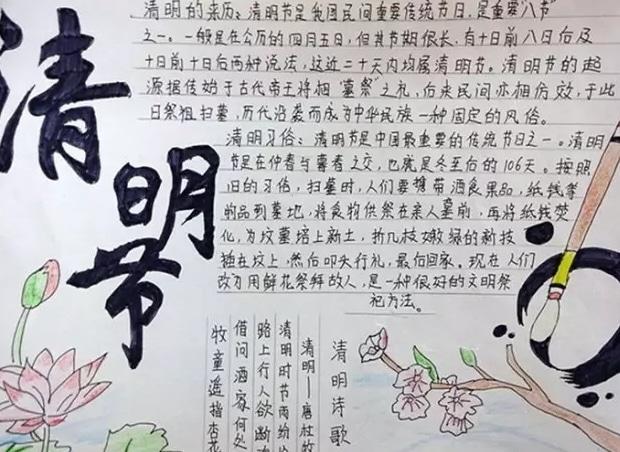 清明节
清明的来历：清明节是我国民间重要传统节日，是重要“八节”
之一。一般是在公历的四月五日，但其节期很长，有十日前八日后及
十日前十日后两种说法，这近二十天内均属清明节。清明节的起
源据传始于古代帝王将相“墓祭”之礼，后来民间亦相仿效，于此
日祭祖扫墓，历代沿袭而成为中华民族一种固定的风俗。
清明习俗：清明节是中国最重要的传统节日之一。清明
节是在仲春与暮春之交，也就是冬至后的106天。按照
旧的习俗，扫墓时，人们要携带酒食果品，纸钱等
物品到墓地，将食物供祭在亲人墓前，再将纸钱焚
化，为坟墓培上新土，折几枝嫩绿的新枝
插在坟上，然后叩头行礼，最后回家。现在人们
改为用鲜花祭拜故人，是一种很好的文明祭
祀方法。
清明诗歌
清明—唐杜牧
清明时节雨纷
路上行人欲断
借问酒家何处
牧童遥指杏花